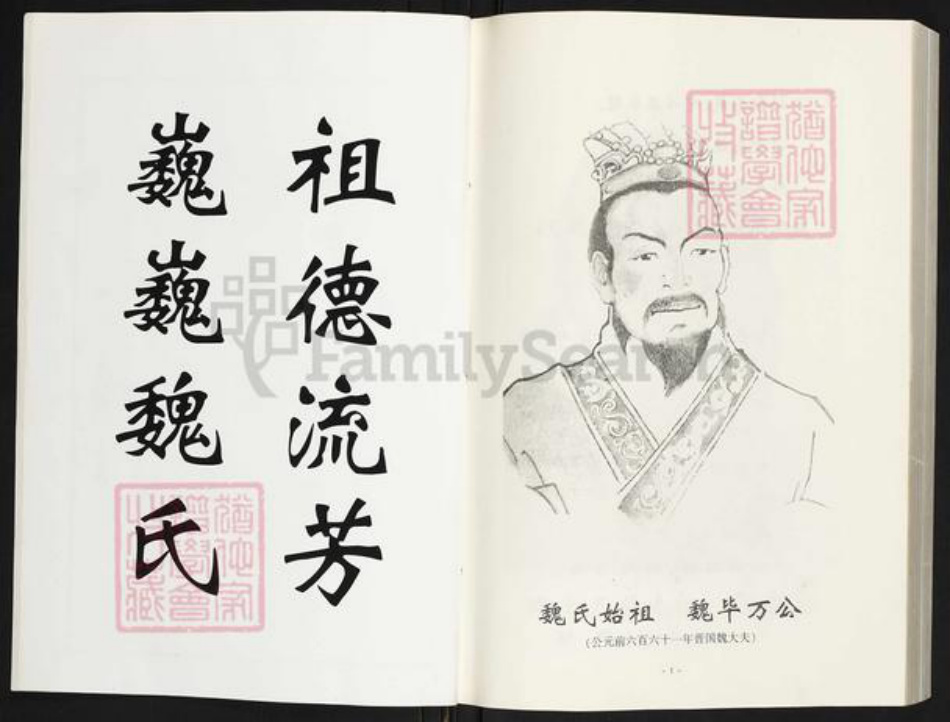 祖德流芳
巍巍魏氏
猶他家
譜學會
收藏
FamilySearch
猶他家
譜學會
收藏
魏氏始祖 魏毕万公
(公元前六百六十一年晋国魏大夫)
-1-